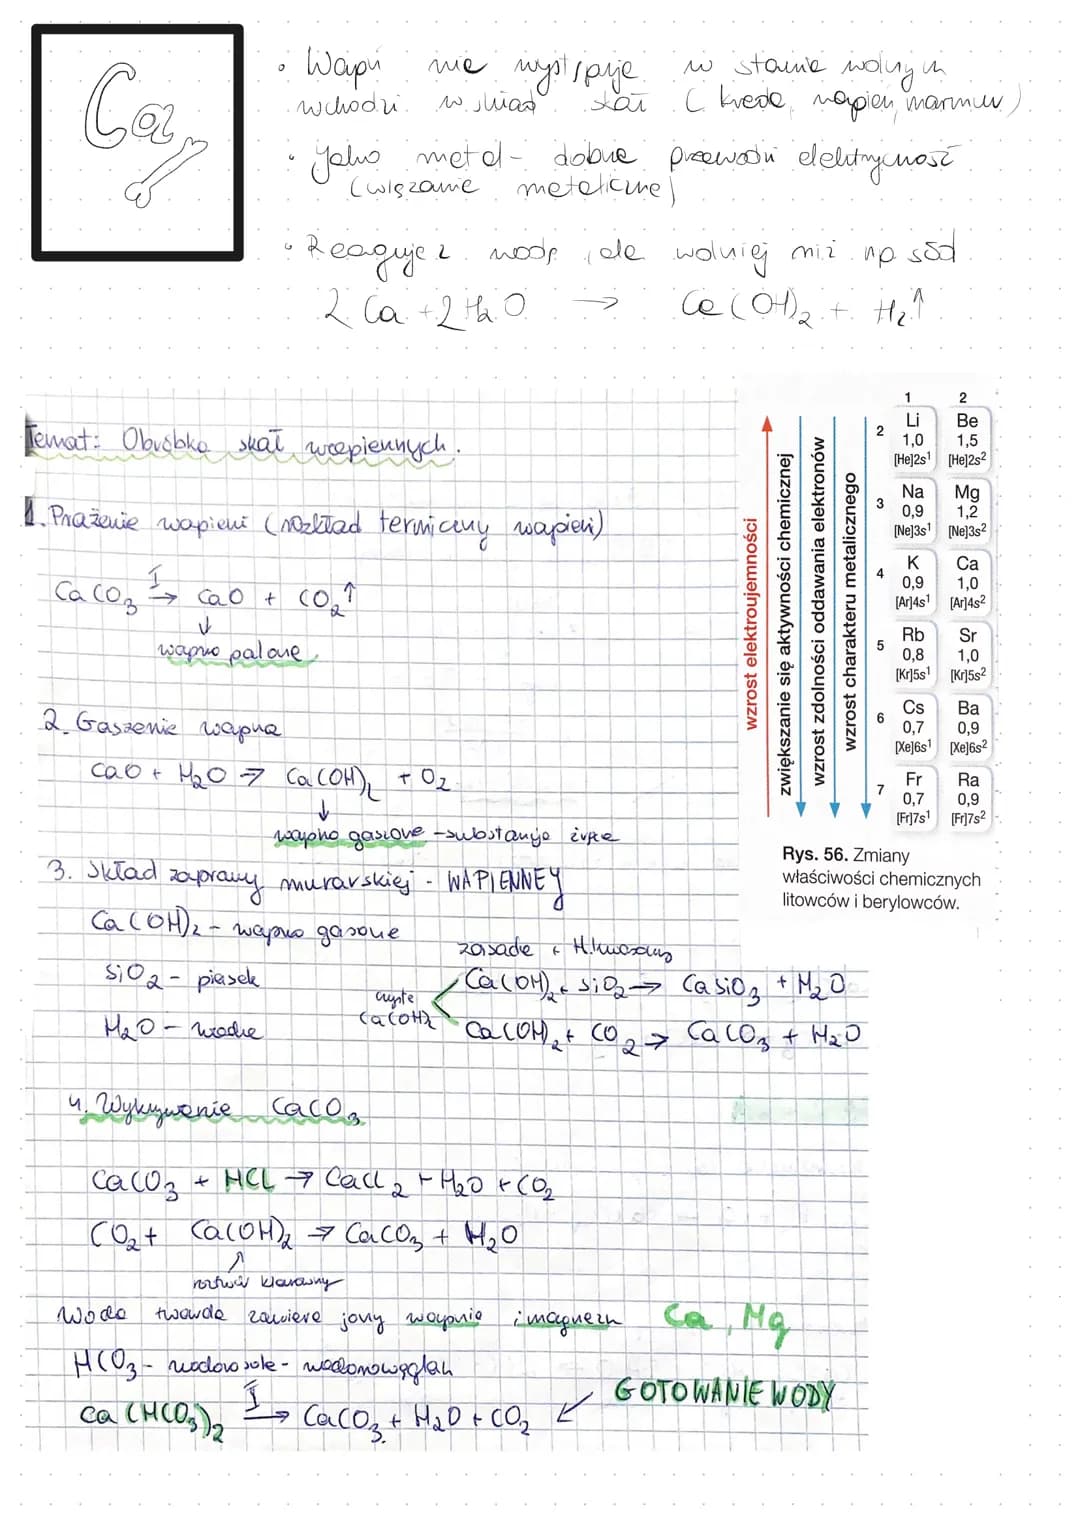 Ca
• Wapń nie występuje w stanie wolnym
wchodzi w skład skał (kreda, wapień, marmur)
• Jako metal - dobrze przewodzi elektryczność
(wiązanie metaliczne)
• Reaguje z wodą, ale wolniej niż np sód
2 Ca + 2 H₂O → Ca(OH)₂ + H₂↑
Temat: Obróbka skał wapiennych.
1. Prażenie wapieni (rozkład termiczny wapieni)
CaCO₃ →T CaO + CO₂↑
↓
wapno palone
2. Gaszenie wapna
CaO + H₂O → Ca(OH)₂ + O₂
↓
wapno gaszone - substancja żrąca
3. Skład zaprawy murarskiej - WAPIENNEJ
Ca(OH)₂ - wapno gaszone
SiO₂ - piasek
H₂O - woda
zasada + tl.kwasowy
czyste Ca(OH)₂ <
Ca(OH)₂ + SiO₂ → CaSiO₃ + H₂O
Ca(OH)₂ + CO₂ → CaCO₃ + H₂O
4. Wykrywanie CaCO₃
CaCO₃ + HCL → CaCl₂ + H₂O + CO₂
CO₂ + Ca(OH)₂ → CaCO₃ + H₂O
↑
roztwór klarowny
Woda twarda zawiera jony wapnia i magnezu Ca, Mg
HCO₃ - wodorosole - wodorowęglan
Ca(HCO₃)₂ →T CaCO₃ + H₂O + CO₂ ↙ GOTOWANIE WODY
wzrost elektroujemności
zwiększanie się aktywności chemicznej
wzrost zdolności oddawania elektronów
wzrost charakteru metalicznego
1 2
2 Li Be
1,0 1,5
[He]2s¹ [He]2s²
3 Na Mg
0,9 1,2
[Ne]3s¹ [Ne]3s²
4 K Ca
0,9 1,0
[Ar]4s¹ [Ar]4s²
5 Rb Sr
0,8 1,0
[Kr]5s¹ [Kr]5s²
6 Cs Ba
0,7 0,9
[Xe]6s¹ [Xe]6s²
7 Fr Ra
0,7 0,9
[Fr]7s¹ [Fr]7s²
Rys. 56. Zmiany
właściwości chemicznych
litowców i berylowców.